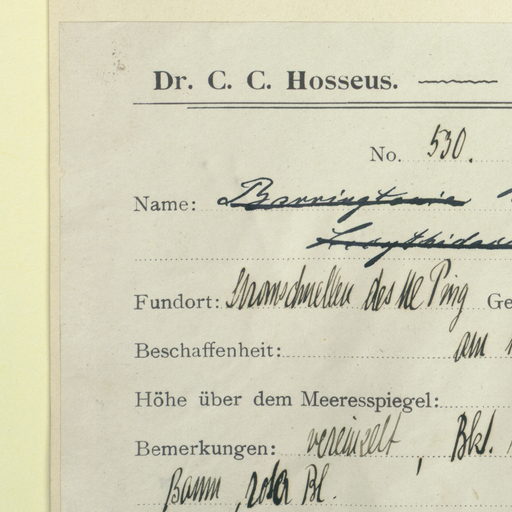 Dr. C. C. Hosseus.
No. 530.
Name: Barringtonia
Fundort: Stromschnellen des Me Ping Ge
Beschaffenheit: am
Höhe über dem Meeresspiegel:
Bemerkungen: vereinzelt, Bkl.
Baum, rosa Bl.